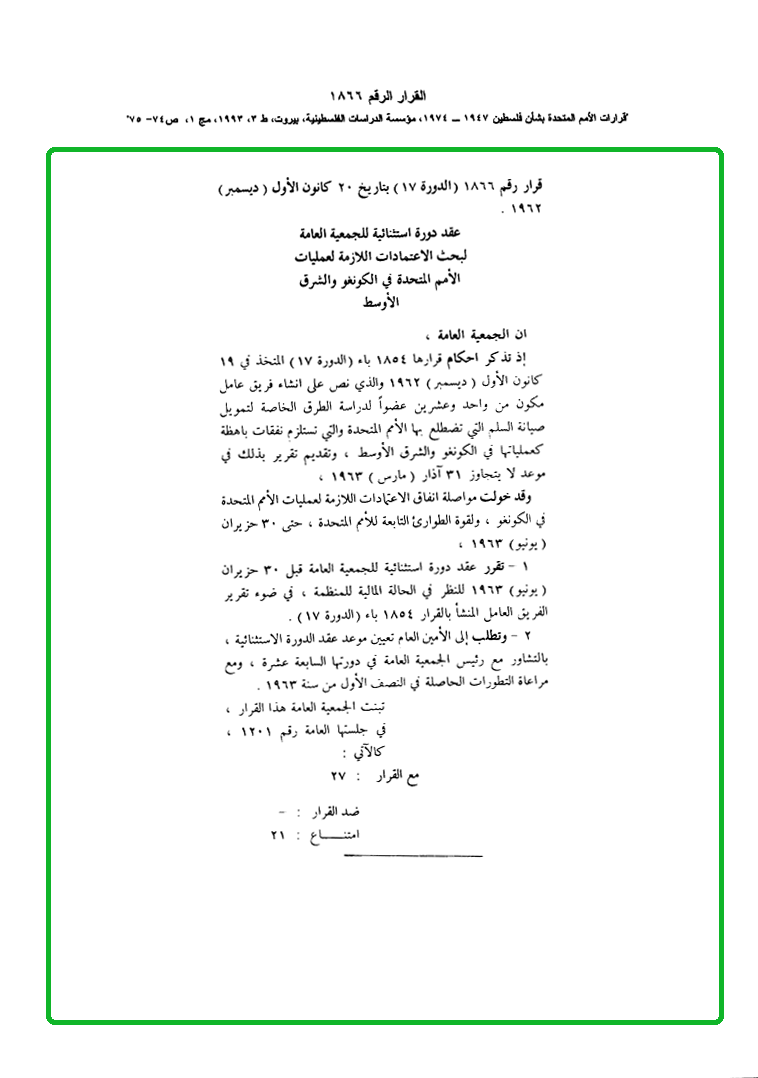 القرار الرقم ١٨٦٦
"قرارات الأمم المتحدة بشأن فلسطين ١٩٤٧ ــ ١٩٧٤، مؤسسة الدراسات الفلسطينية، بيروت، ط ٣، ١٩٩٣، مج ١، ص٧٤- ٧٥"
قرار رقم ١٨٦٦ (الدورة ١٧) بتاريخ ٢٠ كانون الأول (ديسمبر)
١٩٦٢ .
عقد دورة استثنائية للجمعية العامة
لبحث الاعتمادات اللازمة لعمليات
الأمم المتحدة في الكونغو والشرق
الأوسط
ان الجمعية العامة ،
إذ تذكر احكام قرارها ١٨٥٤ باء (الدورة ١٧) المتخذ في ١٩
كانون الأول (ديسمبر) ١٩٦٢ والذي نص على انشاء فريق عامل
مكون من واحد وعشرين عضواً لدراسة الطرق الخاصة لتمويل
صيانة السلم التي تضطلع بها الأمم المتحدة والتي تستلزم نفقات باهظة
كعملياتها في الكونغو والشرق الأوسط ، وتقديم تقرير بذلك في
موعد لا يتجاوز ٣١ آذار (مارس) ١٩٦٣ ،
وقد خولت مواصلة انفاق الاعتمادات اللازمة لعمليات الأمم المتحدة
في الكونغو ، ولقوة الطوارئ التابعة للأمم المتحدة ، حتى ٣٠ حزيران
(يونيو) ١٩٦٣ ،
١ - تقرر عقد دورة استثنائية للجمعية العامة قبل ٣٠ حزيران
(يونيو) ١٩٦٣ للنظر في الحالة المالية للمنظمة ، في ضوء تقرير
الفريق العامل المنشأ بالقرار ١٨٥٤ باء (الدورة ١٧) .
٢ - وتطلب إلى الأمين العام تعيين موعد عقد الدورة الاستثنائية ،
بالتشاور مع رئيس الجمعية العامة في دورتها السابعة عشرة ، ومع
مراعاة التطورات الحاصلة في النصف الأول من سنة ١٩٦٣ .
تبنت الجمعية العامة هذا القرار ،
في جلستها العامة رقم ١٢٠١ ،
كالآتي :
مع القرار : ٢٧
ضد القرار : -
امتنــــاع : ٢١